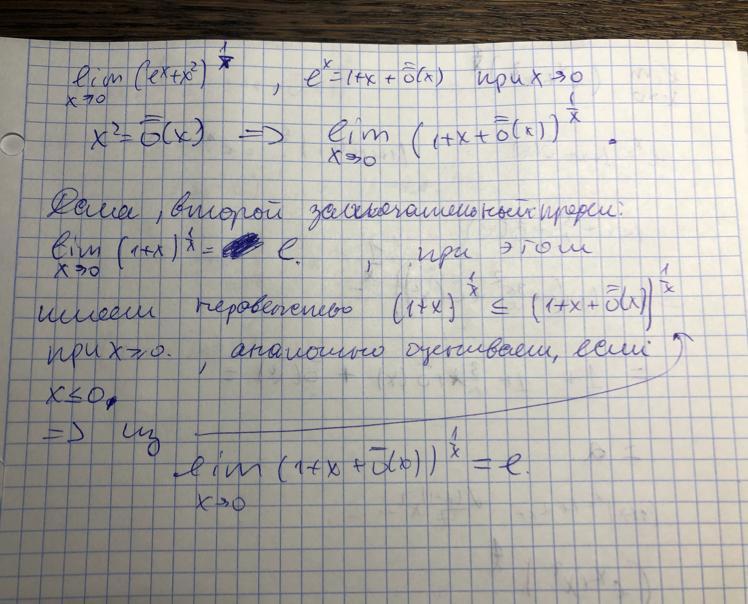 lim (eˣ+x²)^(1/x) , eˣ=1+x+ō̄(x) при x→0
x→0
x²=ō̄(x) => lim (1+x+ō̄(x))^(1/x) .
x→0
Далее, второй замечательный предел:
lim (1+x)^(1/x) = e. , при этом
x→0
имеем неравенство (1+x)^(1/x) ≤ (1+x+ō̄(x))^(1/x)
при x≥0. , аналогично оцениваем, если
x≤0.
=> из
lim (1+x+ō(x))^(1/x) = e.
x→0